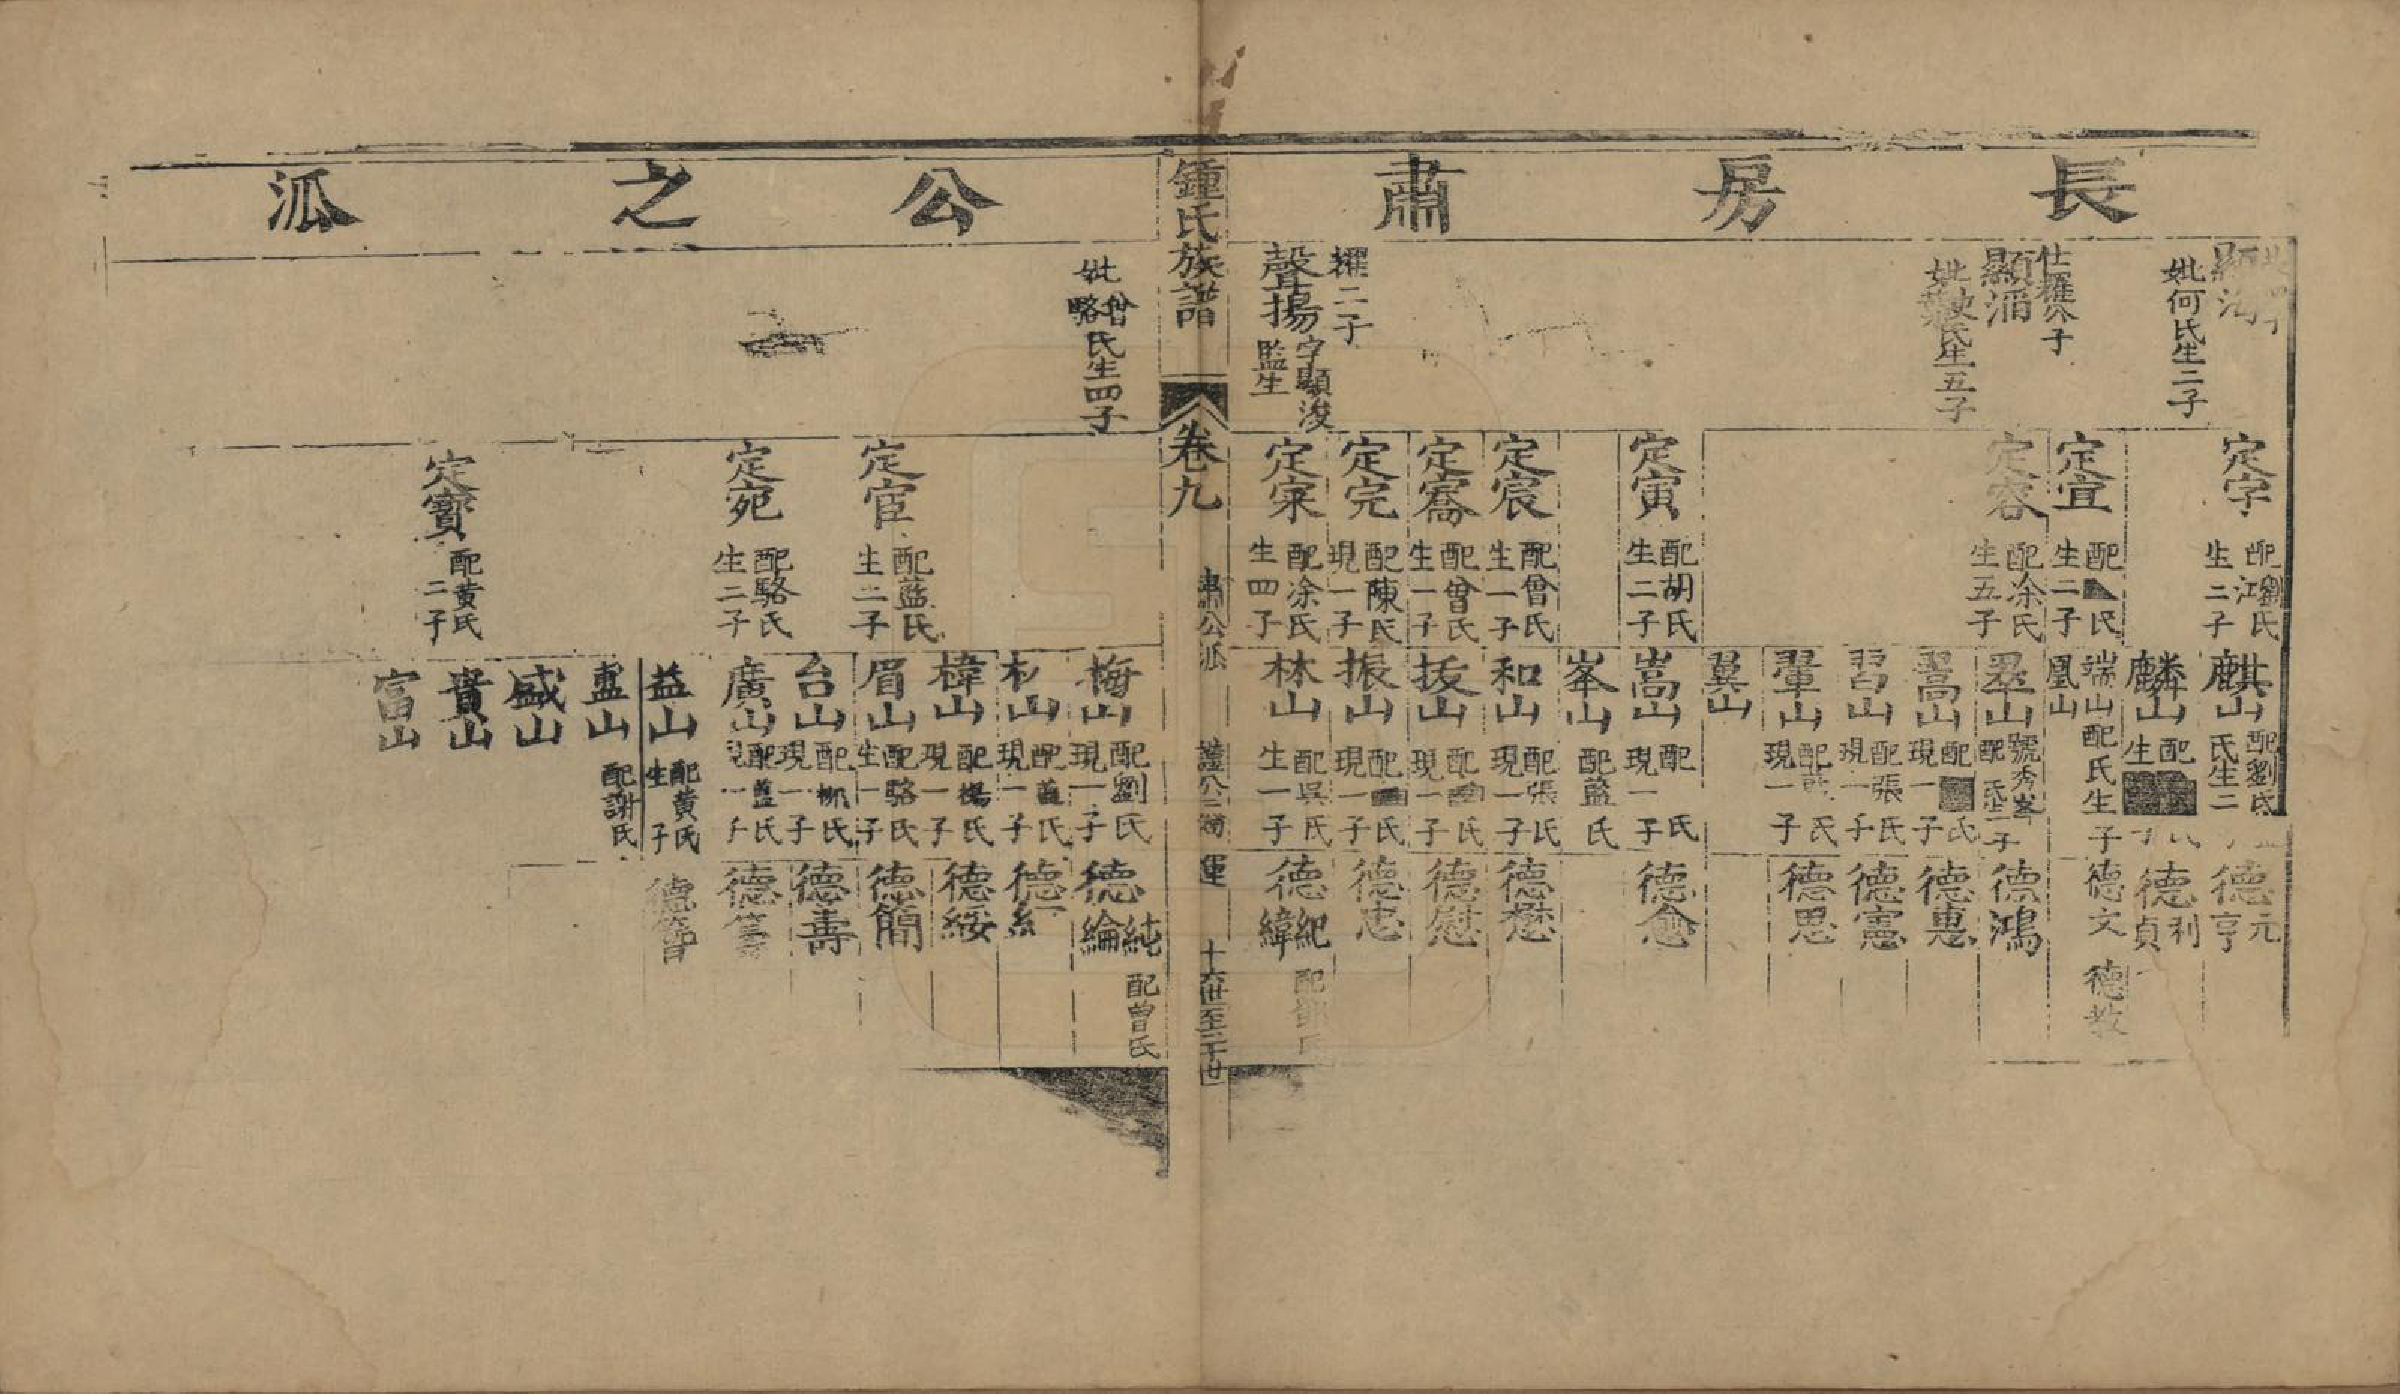 長房肅公之派
顯
妣何氏生二子
仕耀公子
顯湄
氏生五子
耀二子
聲揚
字顯浚
監生
鍾氏族譜
卷九
肅公派
運
十六世至二十世
妣曾
駱氏生四子
定字
配劉氏
江
生二子
定宜
配氏
生二子
定容
配余氏
生五子
定寅
配胡氏
生二子
定宸
配曾氏
生一子
定喬
配曾氏
生一子
定完
配陳氏
現一子
定寀
配涂氏
生四子
定宦
配藍氏
生二子
定宛
配駱氏
生二子
定寶
配黃氏
二子
麒山
配劉氏
氏生二
麟山
配
生
端山配氏生子
凰山
翠山
號秀峯
配氏生二子
翯山
配氏
現一子
習山
配張氏
現一子
翬山
配氏
現一子
翼山
嵩山
配氏
現一子
峯山
配藍氏
和山
配張氏
現一子
拔山
配氏
現一子
振山
配氏
現一子
林山
配吳氏
生一子
梅山
配劉氏
現一子
杉山
配藍氏
現一子
樟山
配楊氏
現一子
眉山
配駱氏
生一子
台山
配柳氏
現一子
廣山
配藍氏
現一子
益山
配黃氏
生子
盂山
配謝氏
盛山
貴山
富山
德元
亨
德利
貞
德文
德教
德鴻
德惠
德憲
德思
德愈
德懋
德慰
德忠
德紀
緯
配鄧氏
德純
綸
配曾氏
德
德綏
德簡
德壽
德
德